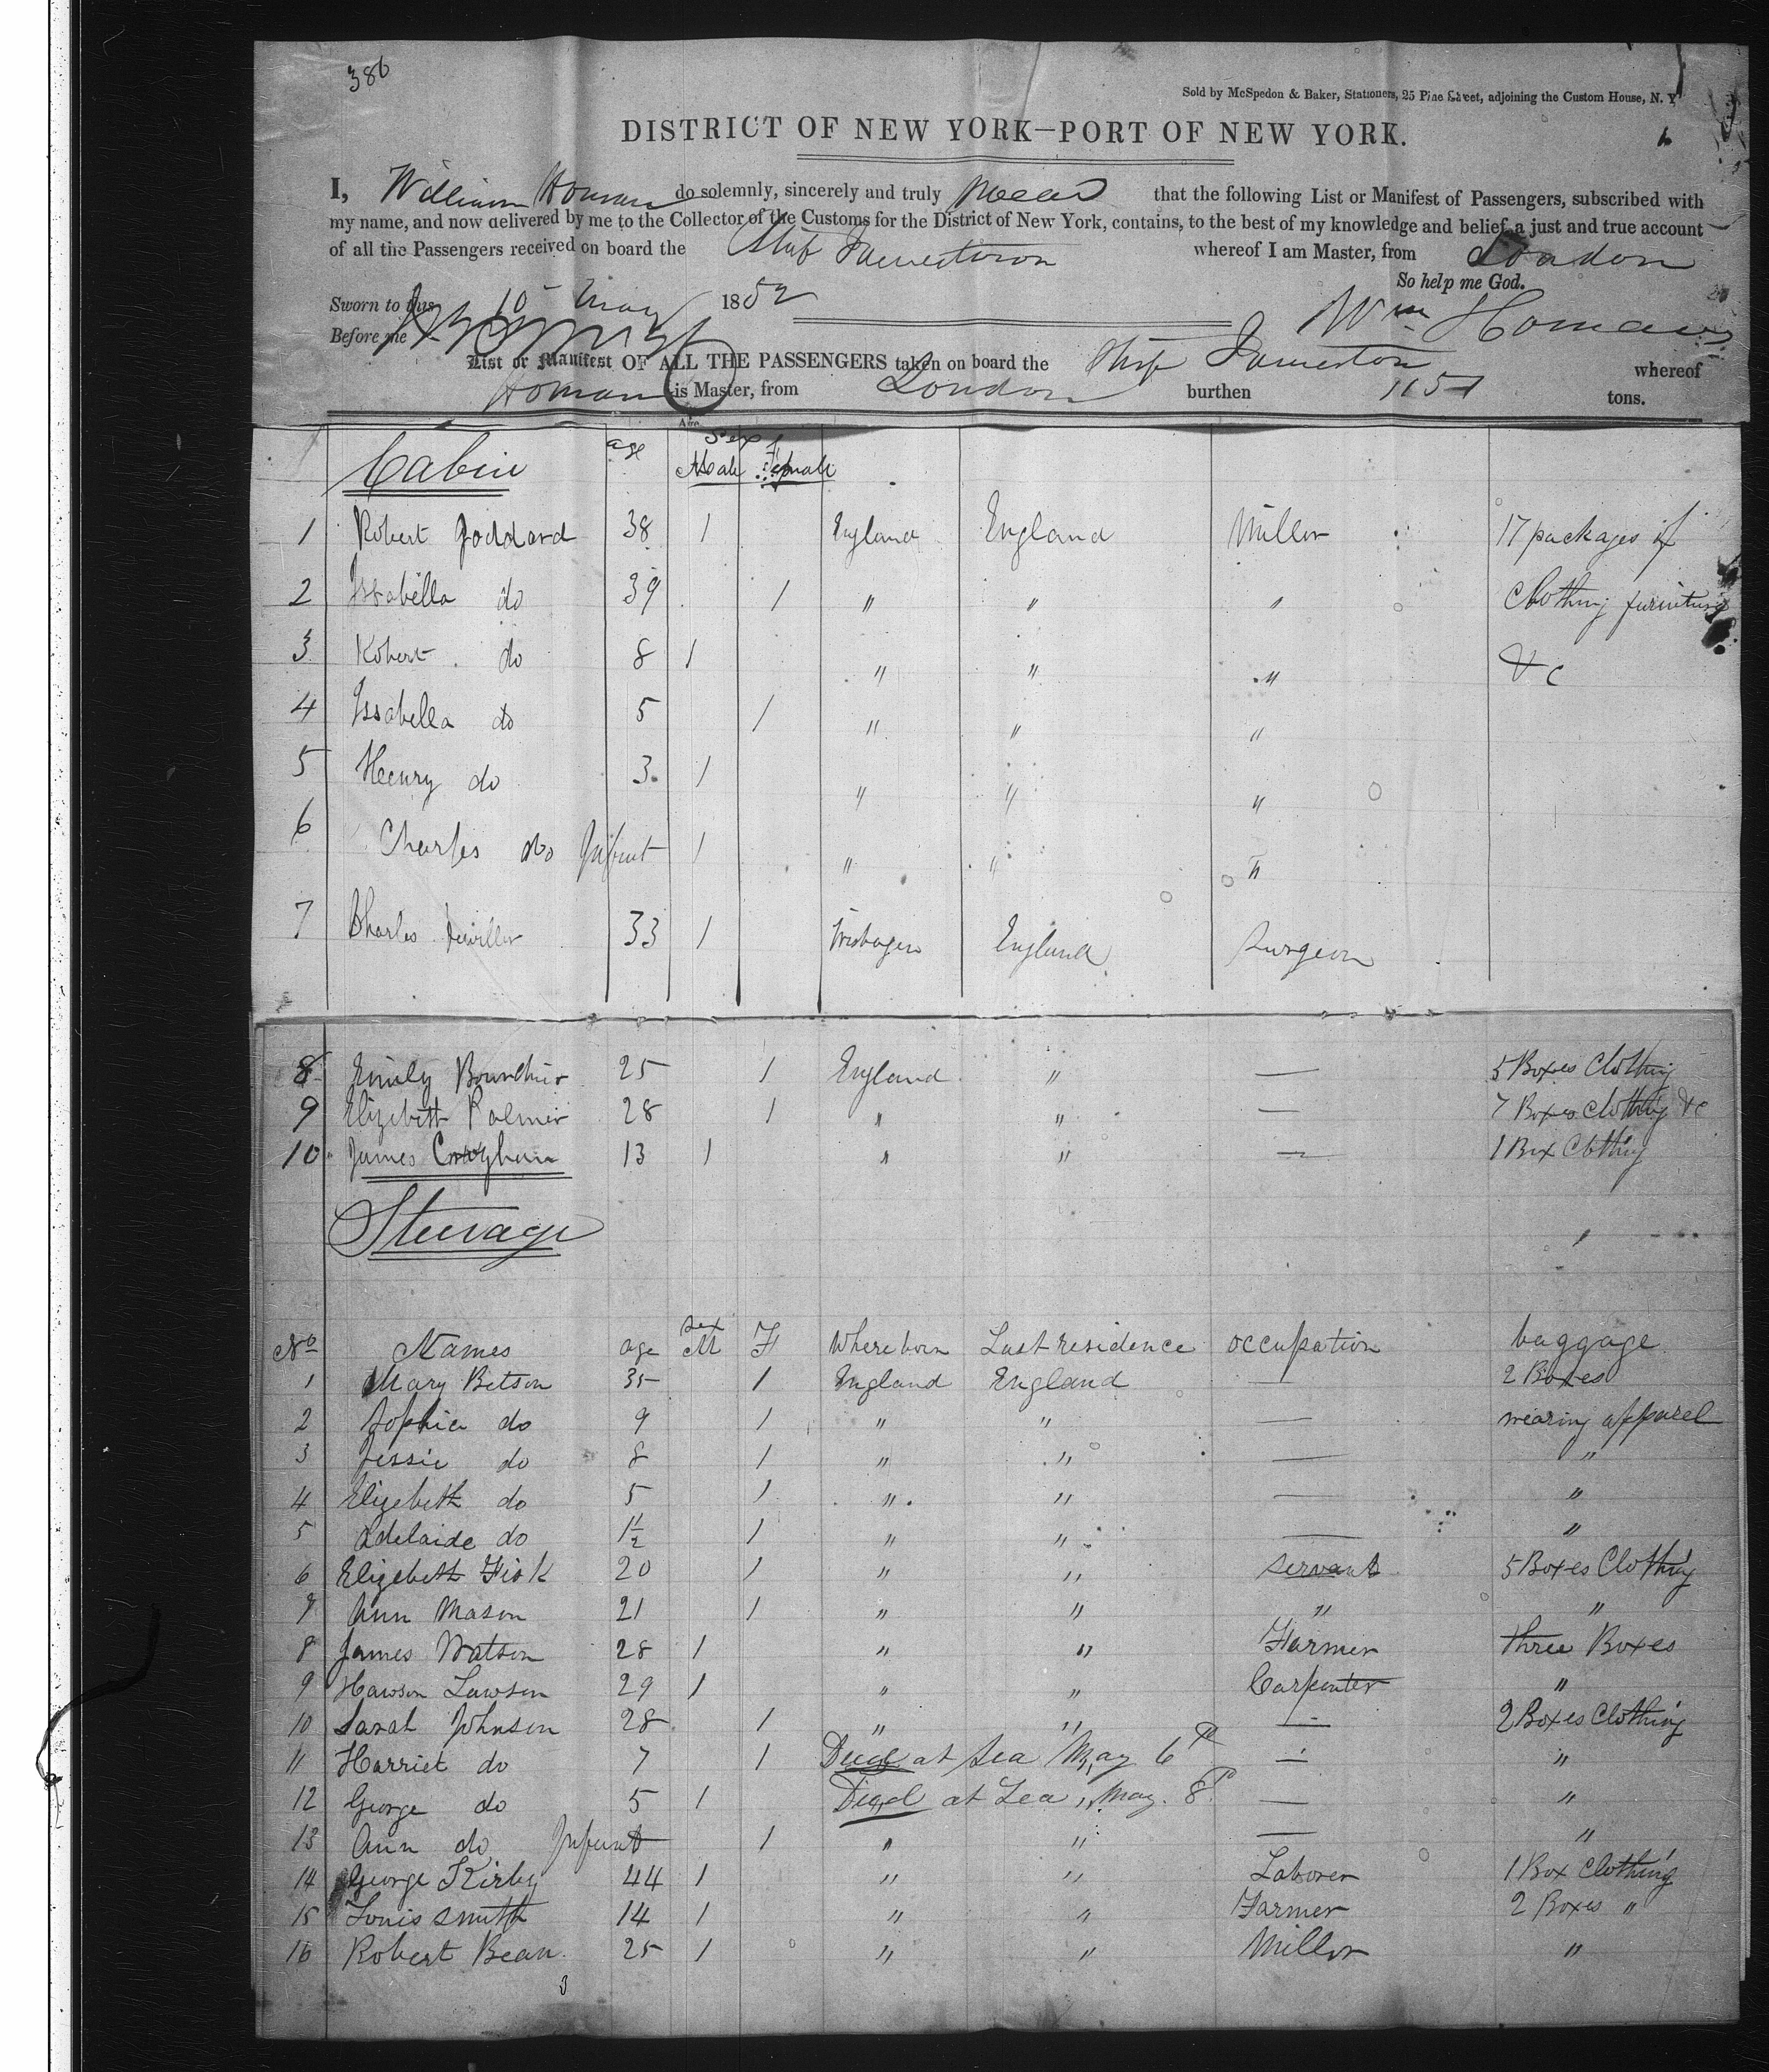 386
Sold by McSpedon & Baker, Stationers, 25 Pine Street, adjoining the Custom House, N. Y.
DISTRICT OF NEW YORK—PORT OF NEW YORK.
I, William Homan do solemnly, sincerely and truly that the following List or Manifest of Passengers, subscribed with
my name, and now delivered by me to the Collector of the Customs for the District of New York, contains, to the best of my knowledge and belief, a just and true account
of all the Passengers received on board the Ship Jamestown whereof I am Master, from London
So help me God.
Sworn to this 10 May 1852
Wm Homan
Before me
List or Manifest OF ALL THE PASSENGERS taken on board the Ship Jamestown whereof
Homan is Master, from London burthen 1151 tons.
Age
Cabin age Sex Male Female
1 Robert Goddard 38 1 England England Miller 17 packages of
2 Issabella do 39 1 " " " Clothing furniture
3 Robert do 8 1 " " " &c
4 Issabella do 5 1 " " "
5 Heenry do 3 1 " " "
6 Charles do Infant 1 " " "
7 Charles 33 1 England Surgeon
8 Emily 25 1 England " — 5 Boxes Clothing
9 Elizebeth Palmer 28 1 " " — 7 Boxes Clothing &c
10 James 13 1 " " — 1 Box Clothing
Steerage
No Names age Sex M F Where born Last residence occupation baggage
1 Mary Betson 35 1 England England — 2 Boxes
2 Sophia do 9 1 " " — wearing apparel
3 Jessie do 8 1 " " — "
4 Elizebeth do 5 1 " " — "
5 Adelaide do 1½ 1 " " — "
6 Elizebeth Fisk 20 1 " " servant 5 Boxes Clothing
7 Ann Mason 21 1 " " " "
8 James Watson 28 1 " " Farmer three Boxes
9 Hawson Lawson 29 1 " " Carpenter "
10 Sarah Johnson 28 1 " " — 2 Boxes Clothing
11 Harriet do 7 1 Died at Sea May 6th — "
12 George do 5 1 Died at Sea May 8th — "
13 Ann do Infant 1 " " — "
14 George Kirby 44 1 " " Laborer 1 Box Clothing
15 Louis Smith 14 1 " " Farmer 2 Boxes "
16 Robert Bean 25 1 " " Miller "
3